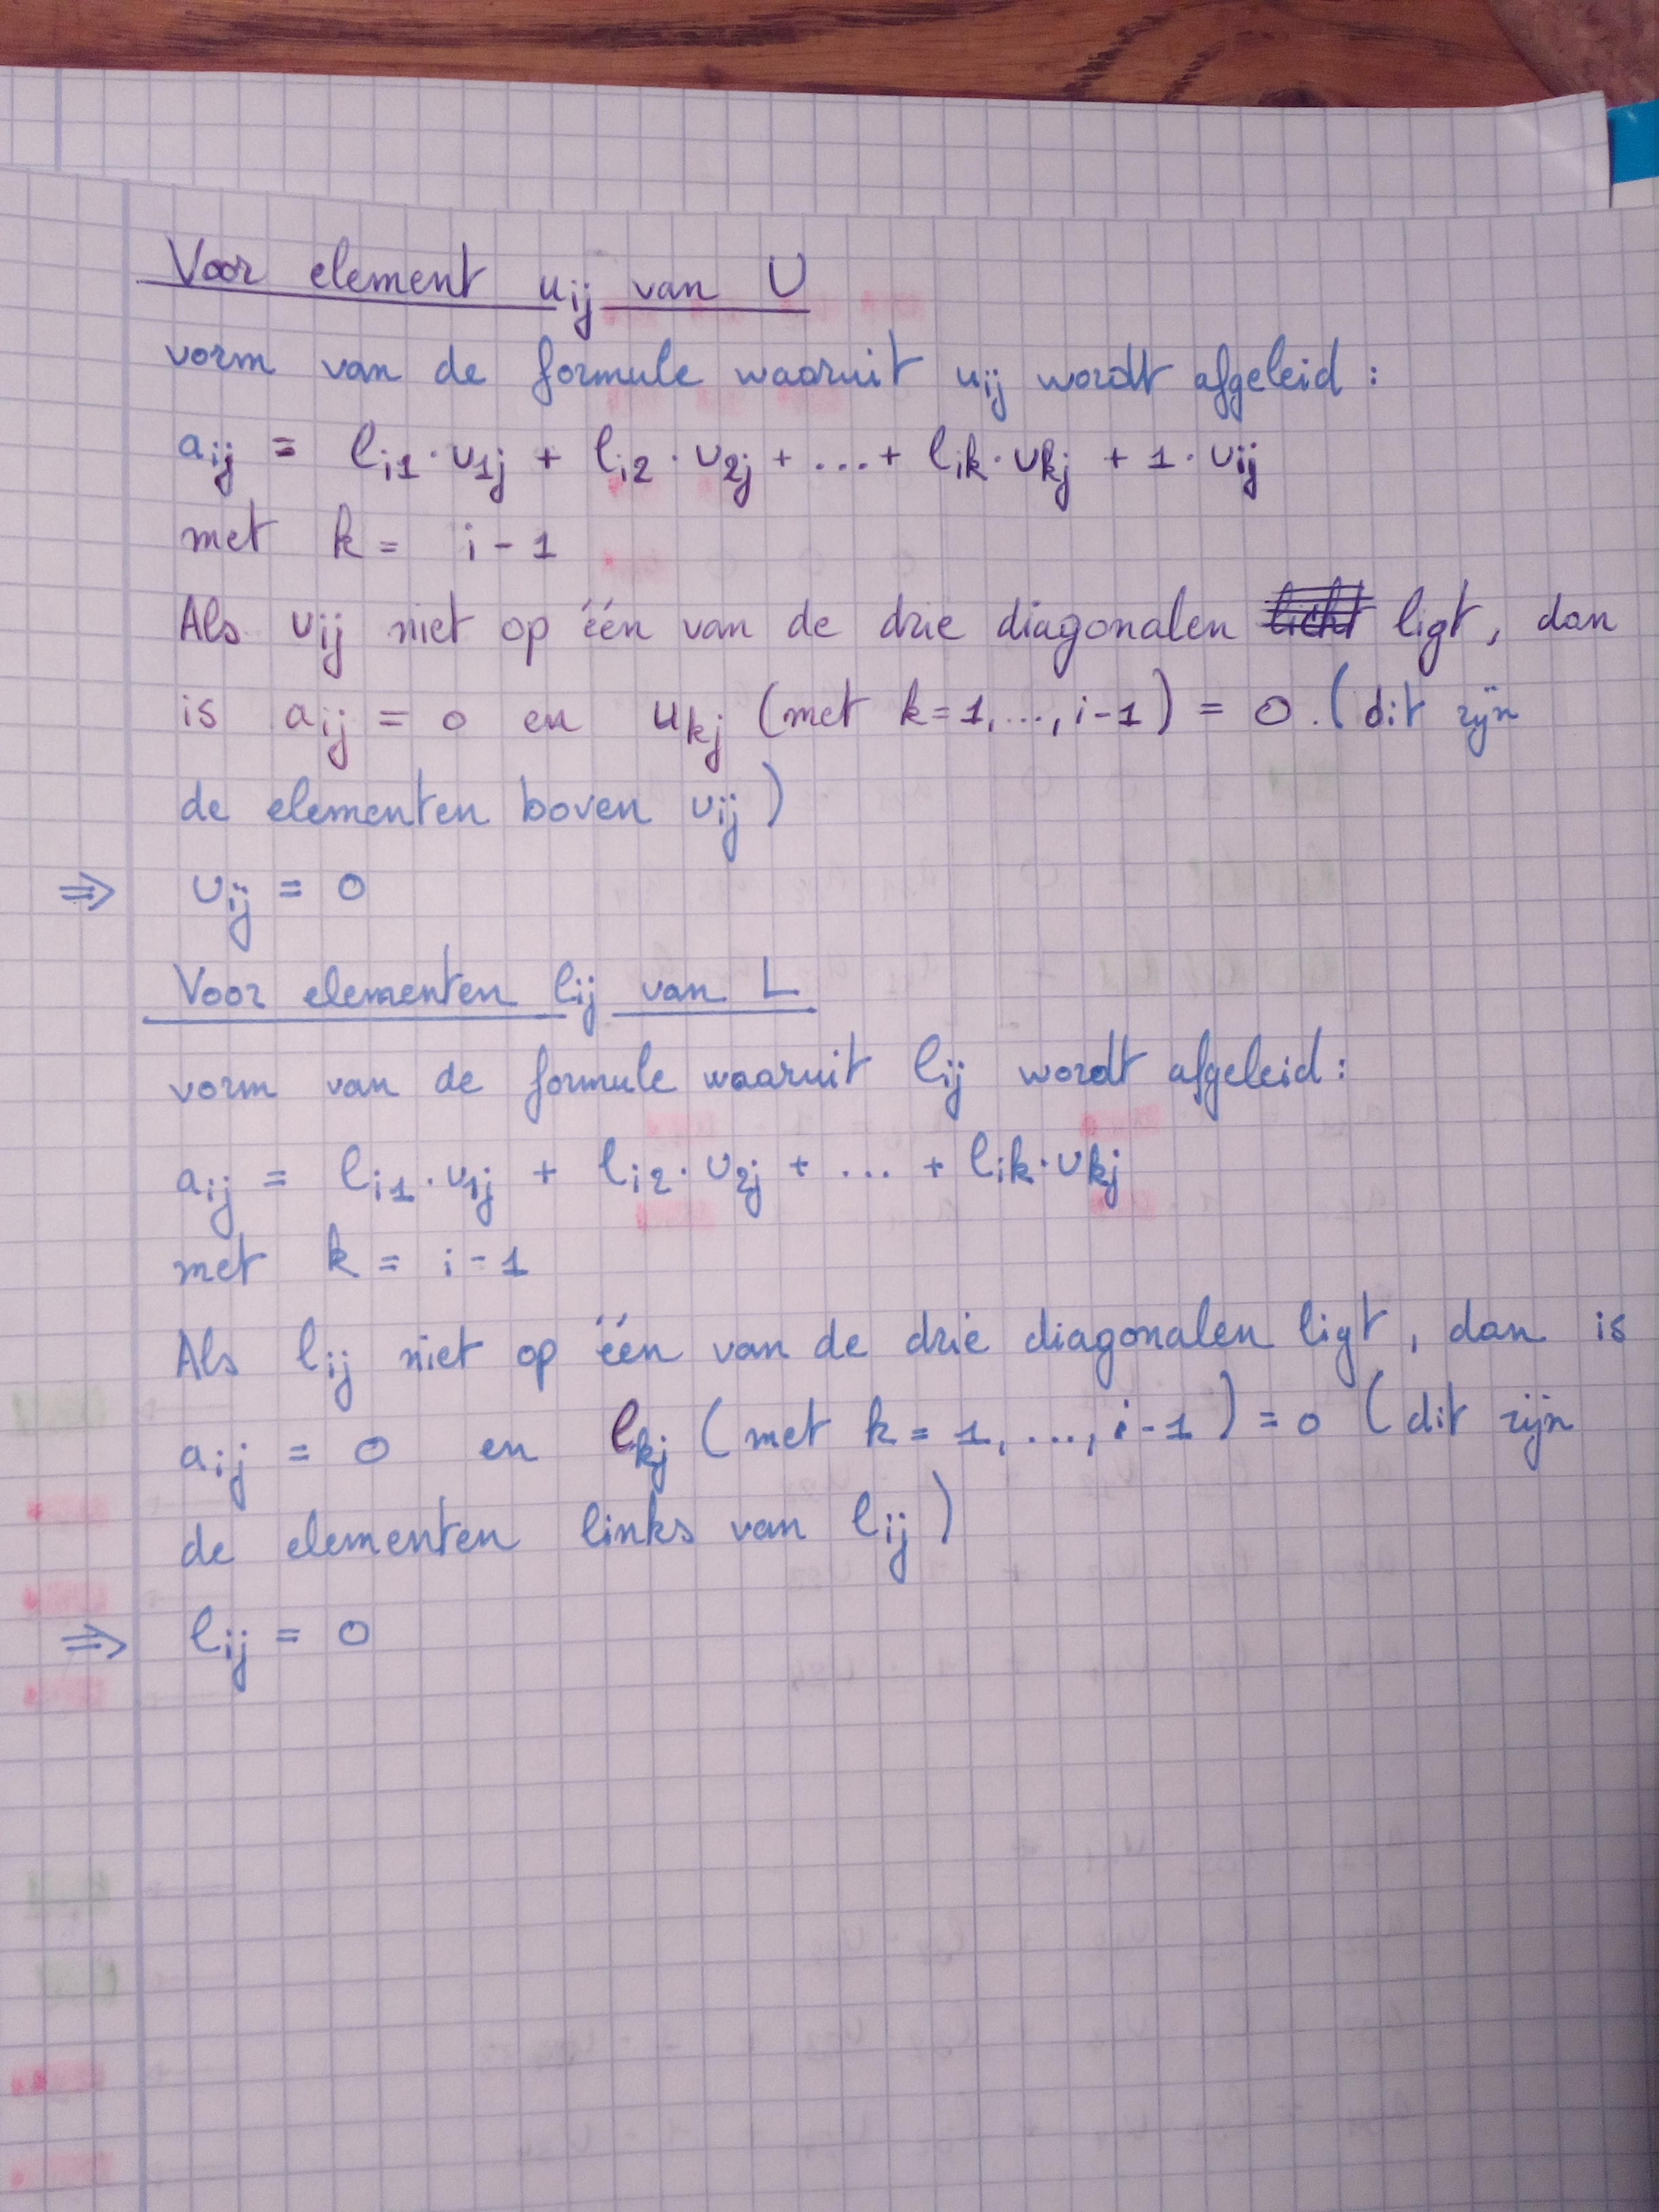 Voor element uij van U
vorm van de formule waaruit uij wordt afgeleid :
aij = li1 · u1j + li2 · u2j + ... + lik · ukj + 1 · uij
met k = i - 1
Als uij niet op één van de drie diagonalen ligt, dan
is aij = 0 en ukj (met k=1,...,i-1) = 0. (dit zijn
de elementen boven uij)
⇒ uij = 0
Voor elementen lij van L
vorm van de formule waaruit lij wordt afgeleid :
aij = li1 · u1j + li2 · u2j + ... + lik · ukj
met k = i - 1
Als lij niet op één van de drie diagonalen ligt, dan is
aij = 0 en lkj (met k = 1, ..., i-1) = 0 (dit zijn
de elementen links van lij)
⇒ lij = 0